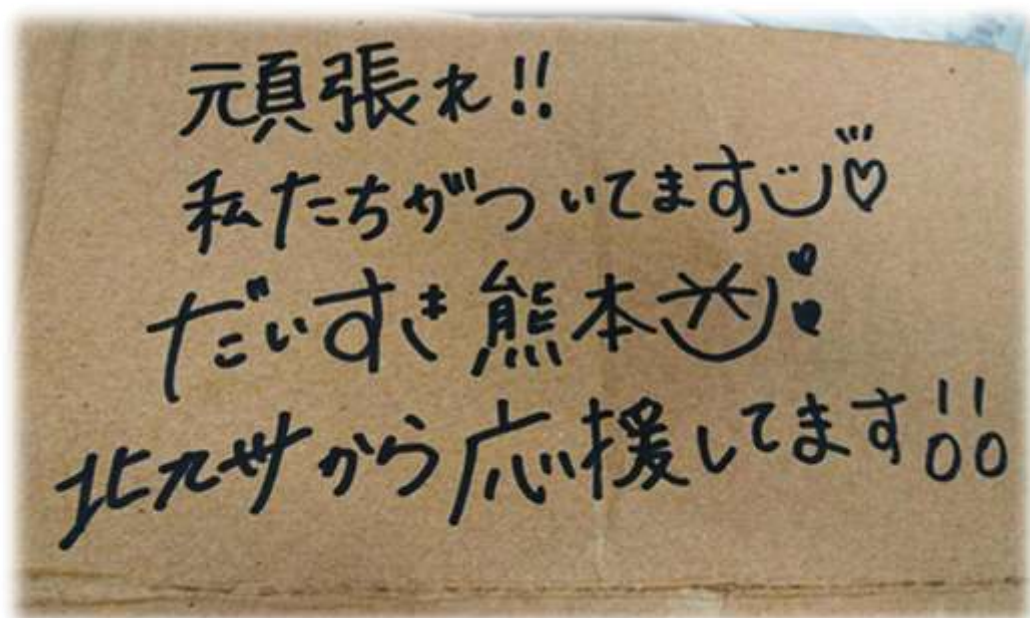 頑張れ!!
私たちがついてます♡
だいすき熊本
北九州から応援してます!!